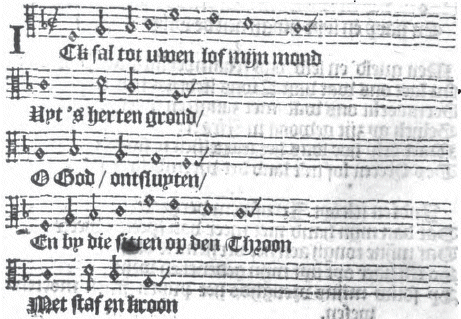 ICk sal tot uwen lof mijn mond
Uyt 's herten grond/
O God / ontsluyten/
En by die sitten op den Throon
Met staf en kroon